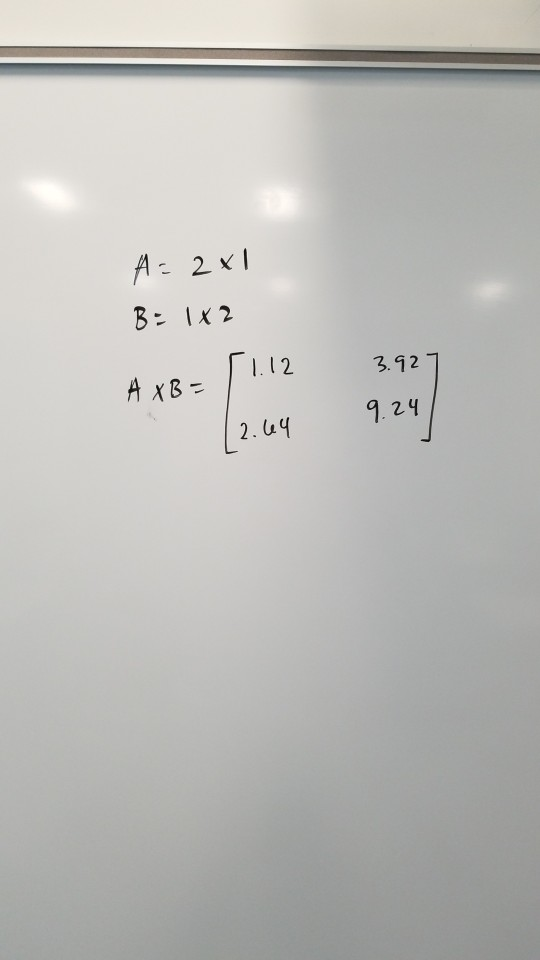 A = 2 x 1
B = 1 x 2
A x B = [1.12 3.92
2.64 9.24]